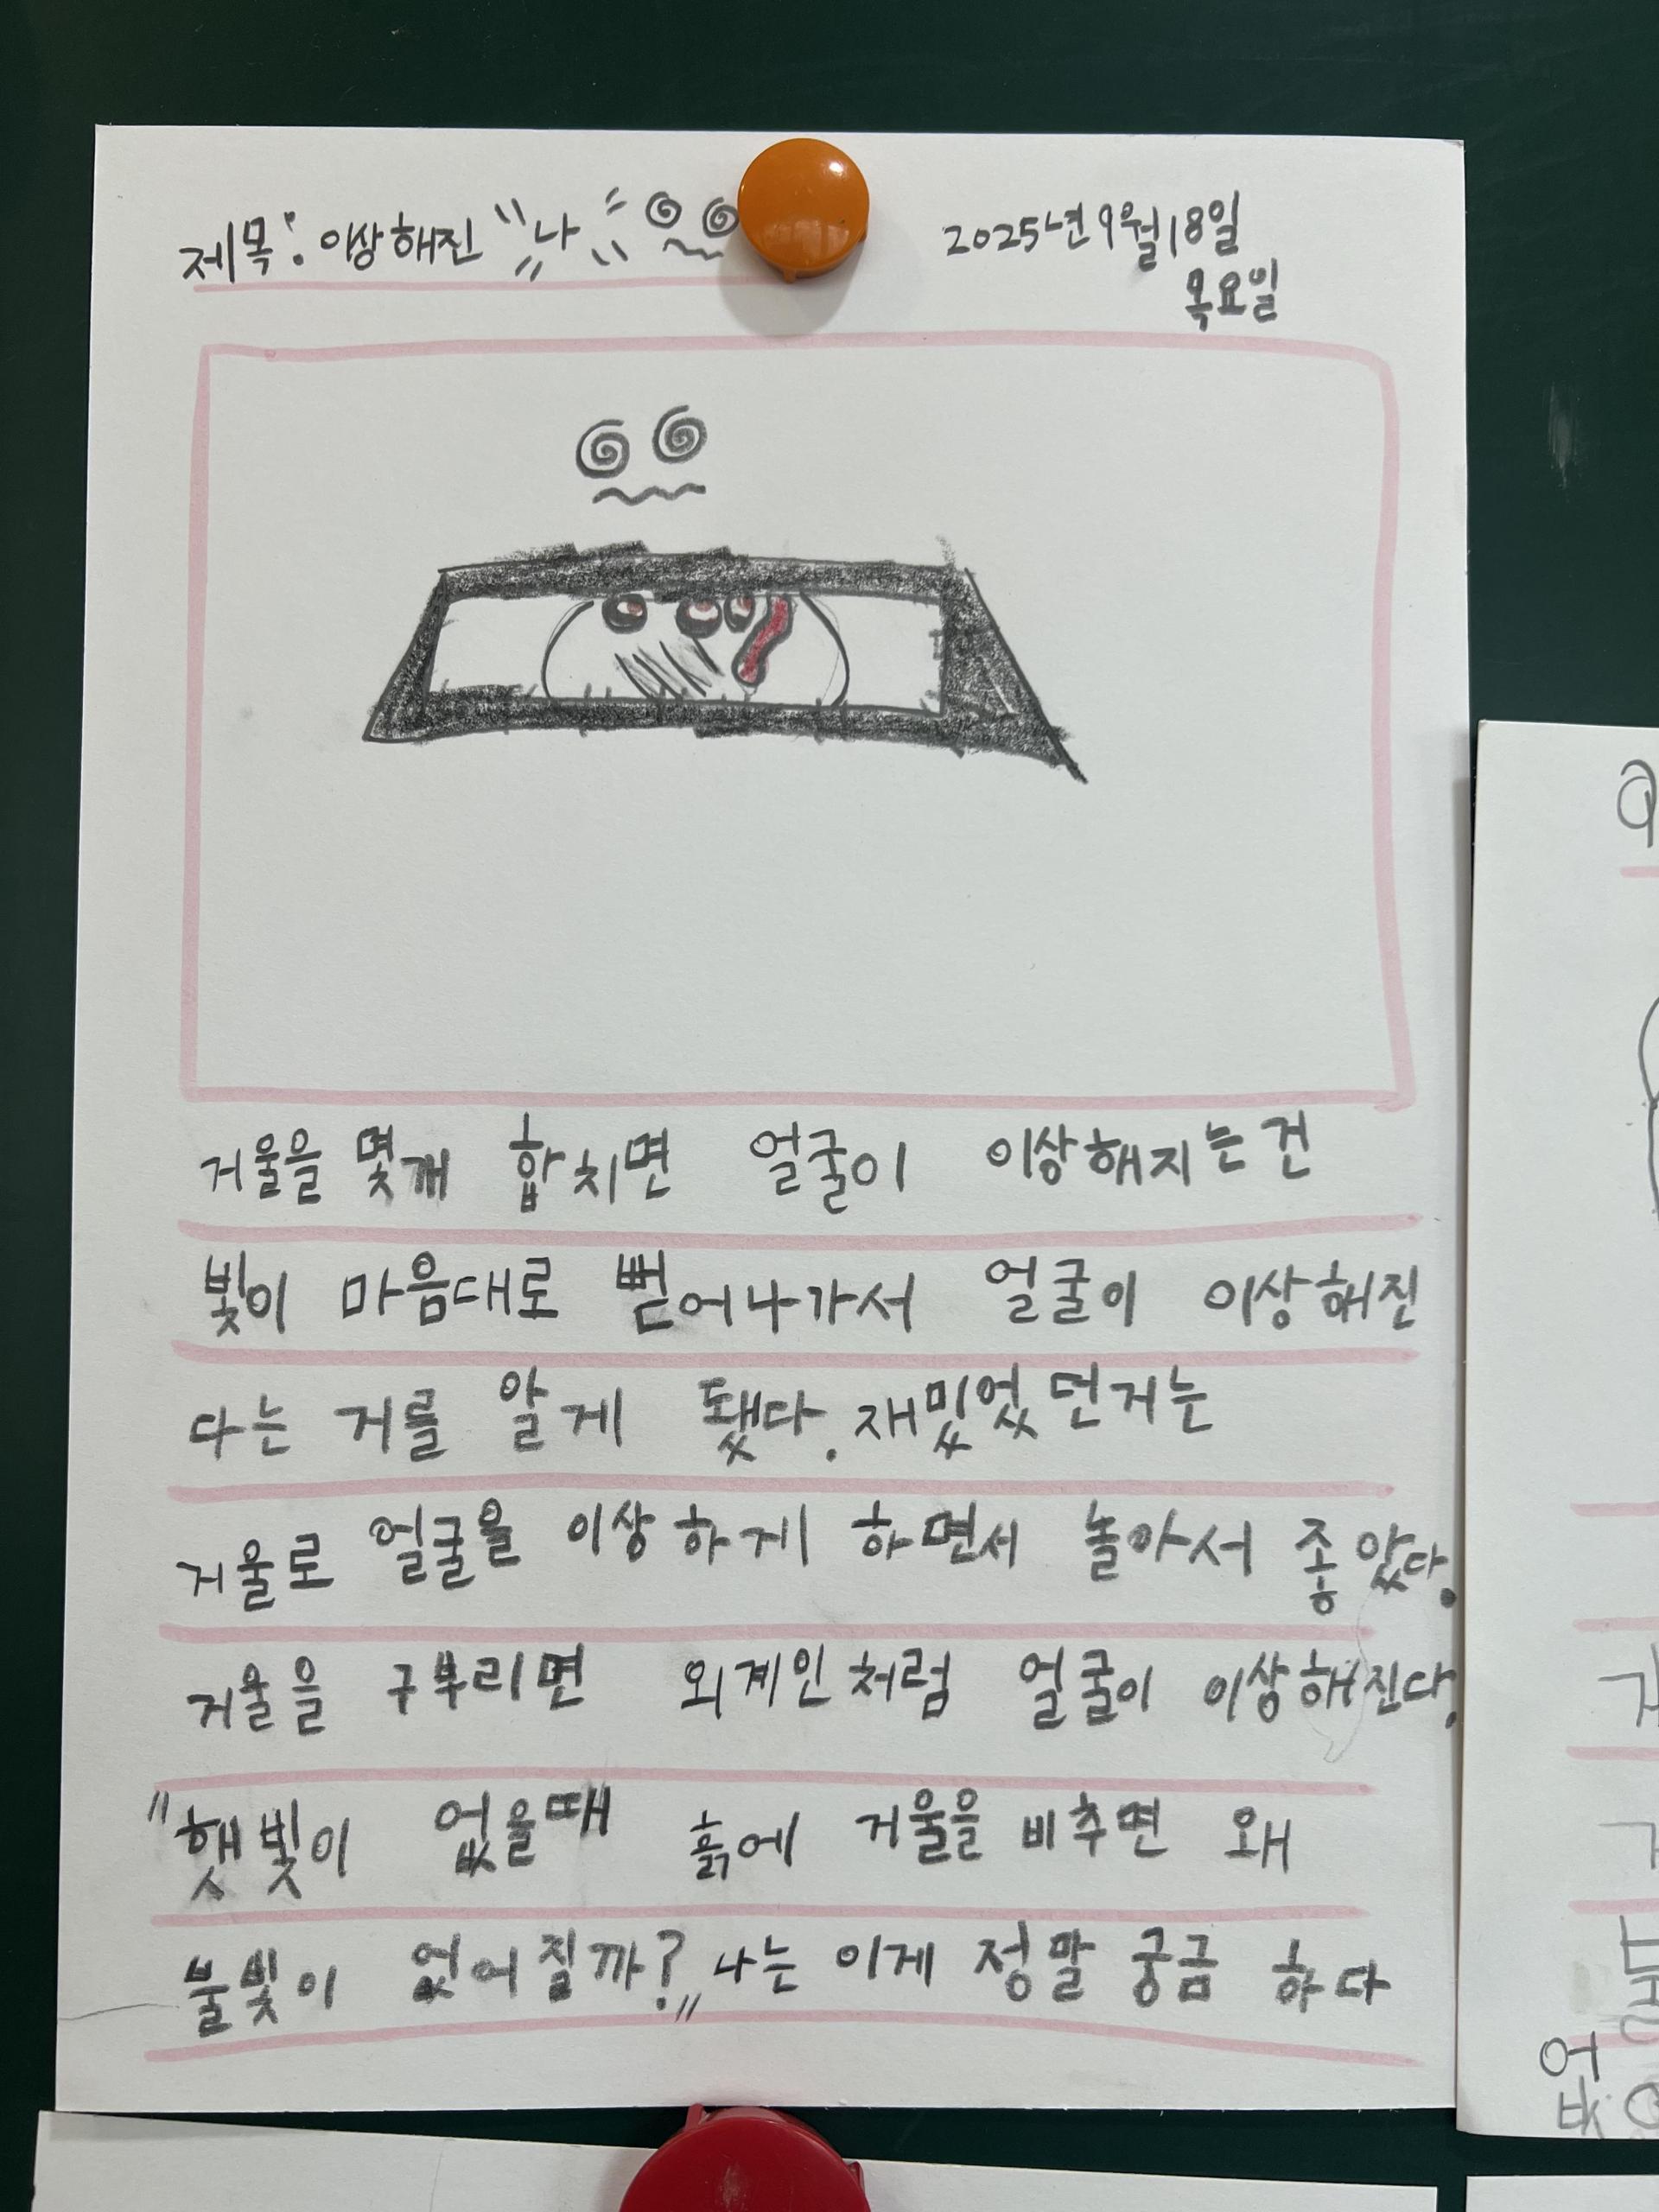 제목: 이상해진 "나"
2025년 9월 18일
목요일
거울을 몇개 합치면 얼굴이 이상해지는건
빛이 마음대로 뻗어나가서 얼굴이 이상해진
다는 거를 알게 됐다. 재밌었던거는
거울로 얼굴을 이상하게 하면서 놀아서 좋았다.
거울을 구부리면 외계인처럼 얼굴이 이상해진다.
"햇빛이 없을때 흙에 거울을 비추면 왜
불빛이 없어질까?" 나는 이게 정말 궁금하다